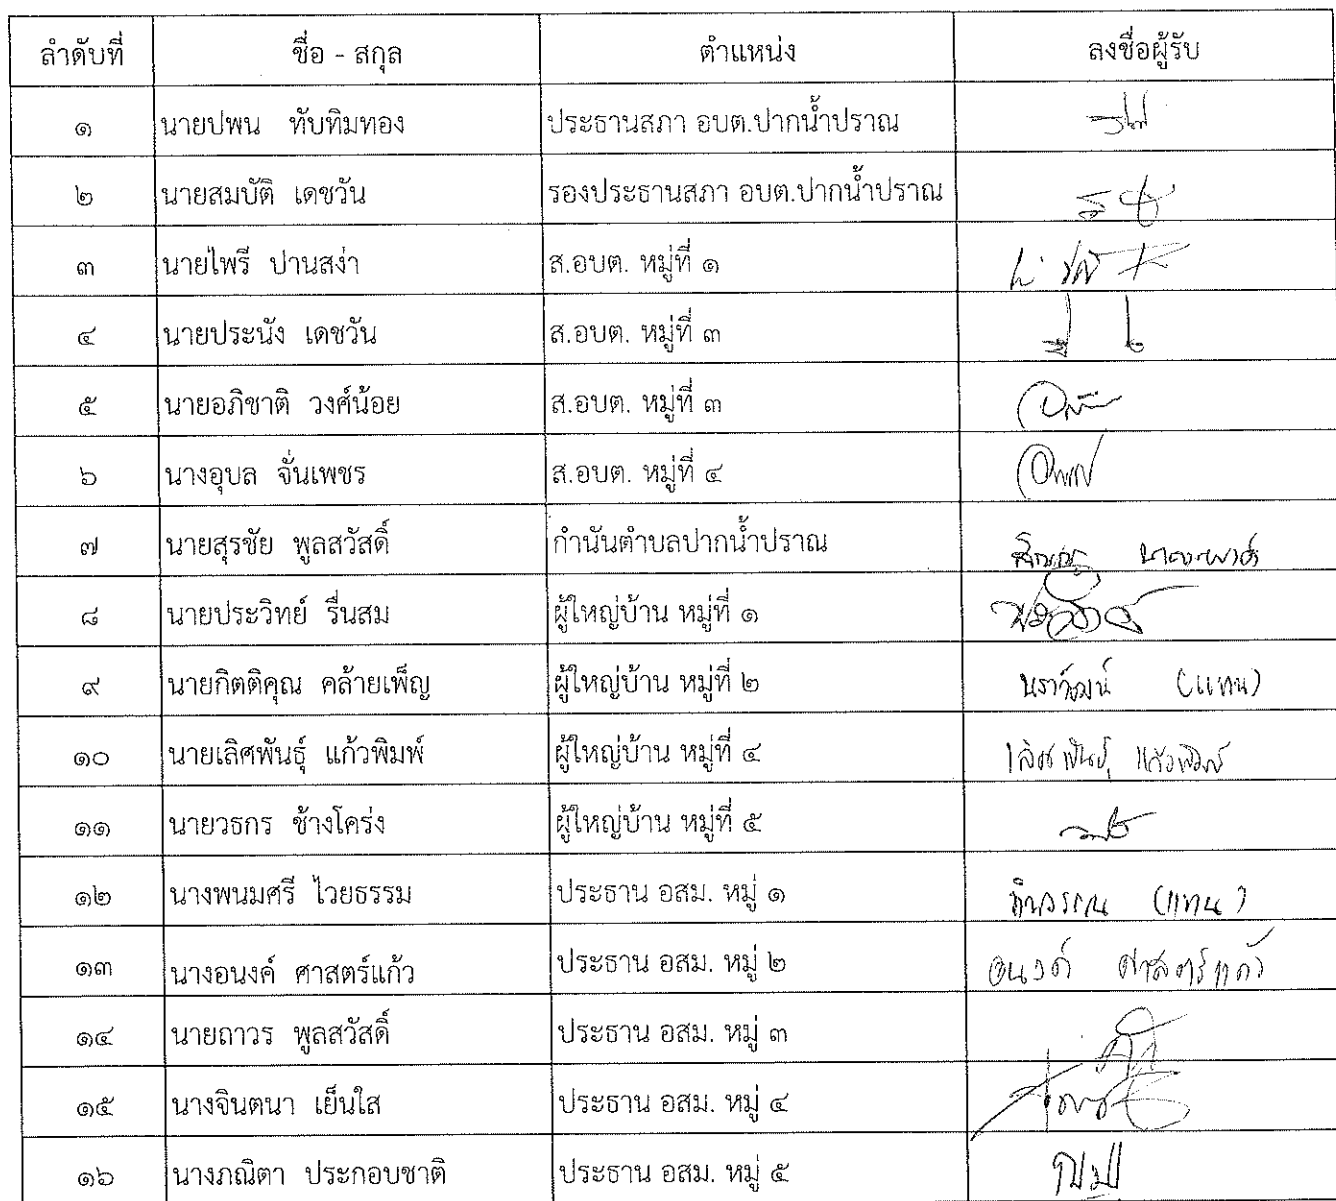 ลำดับที่ ชื่อ - สกุล ตำแหน่ง ลงชื่อผู้รับ
๑ นายปพน ทับทิมทอง ประธานสภา อบต.ปากน้ำปราณ
๒ นายสมบัติ เดชวัน รองประธานสภา อบต.ปากน้ำปราณ
๓ นายไพรี ปานสง่า ส.อบต. หมู่ที่ ๑
๔ นายประนัง เดชวัน ส.อบต. หมู่ที่ ๓
๕ นายอภิชาติ วงศ์น้อย ส.อบต. หมู่ที่ ๓
๖ นางอุบล จั่นเพชร ส.อบต. หมู่ที่ ๔
๗ นายสุรชัย พูลสวัสดิ์ กำนันตำบลปากน้ำปราณ
๘ นายประวิทย์ รื่นสม ผู้ใหญ่บ้าน หมู่ที่ ๑
๙ นายกิตติคุณ คล้ายเพ็ญ ผู้ใหญ่บ้าน หมู่ที่ ๒ (แทน)
๑๐ นายเลิศพันธุ์ แก้วพิมพ์ ผู้ใหญ่บ้าน หมู่ที่ ๔ เลิศพันธุ์ แก้วพิมพ์
๑๑ นายวธกร ช้างโคร่ง ผู้ใหญ่บ้าน หมู่ที่ ๕
๑๒ นางพนมศรี ไวยธรรม ประธาน อสม. หมู่ ๑ (แทน)
๑๓ นางอนงค์ ศาสตร์แก้ว ประธาน อสม. หมู่ ๒ อนงค์ ศาสตร์แก้ว
๑๔ นายถาวร พูลสวัสดิ์ ประธาน อสม. หมู่ ๓
๑๕ นางจินตนา เย็นใส ประธาน อสม. หมู่ ๔
๑๖ นางภณิตา ประกอบชาติ ประธาน อสม. หมู่ ๕